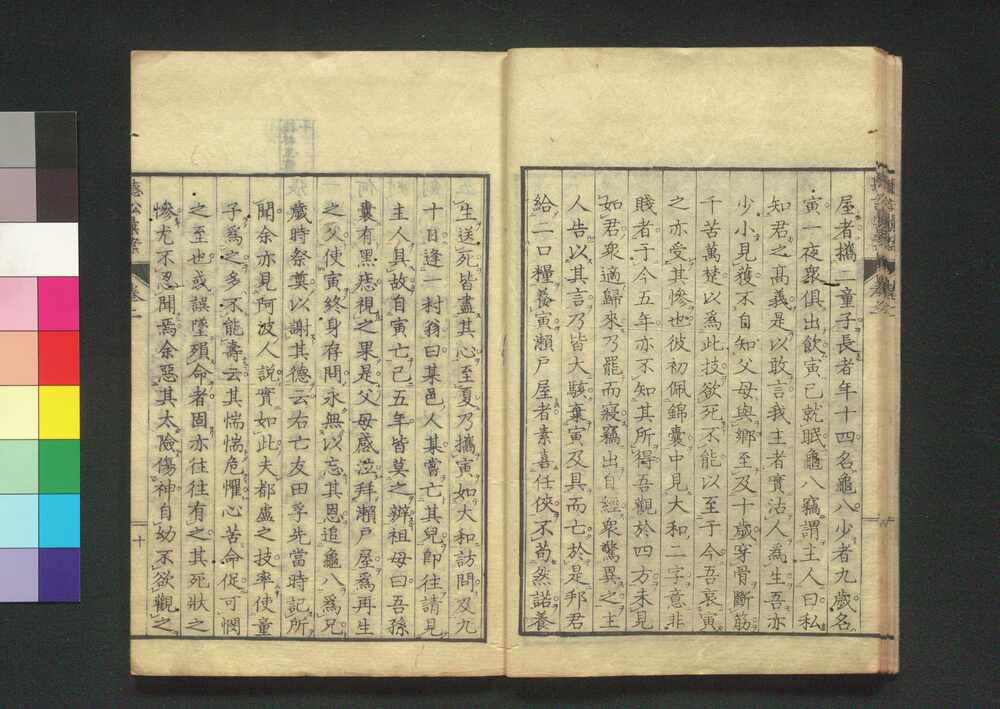 屋者攜二童子長者年十四名龜八少者九歲名
寅一夜衆俱出飮寅已就眠龜八竊謂主人曰私
知君之高義是以敢言我主者實沽人爲生吾亦
少小見獲不自知父母與鄉至及十歲穿骨斷筋
千苦萬楚以爲此技欲死不能以至于今吾哀寅
之亦受其慘也彼初佩錦囊中見大和二字意非
賤者于今五年亦不知其所得吾觀於四方未見
如君衆適歸來乃罷而寢竊出自經衆驚異之主
人告以其言乃皆大駭棄寅及具而亡於是邦君
給二口糧養寅瀨戶屋者素喜任俠不苟然諾養
生送死皆盡其心至夏乃攜寅如大和訪問及九
十日逢一村翁曰某邑人某嘗亡其兒卽往請見
主人具故自寅亡已五年皆莫之辦祖母曰吾孫
囊有黑痣視之果是父母感泣拜瀨戶屋爲再生
之父使寅終身存問永無以忘其恩追龜八爲兄
歲時祭奠以謝其德云右亡友田孚先當時記所
聞余亦見阿波人說實如此夫都盧之技率使童
子爲之多不能壽云其惴惴危懼心苦命促可憫
之至也或誤墜殞命者固亦往往有之其死狀之
慘尤不忍聞焉余惡其太險傷神自幼不欲觀之
卷二
十